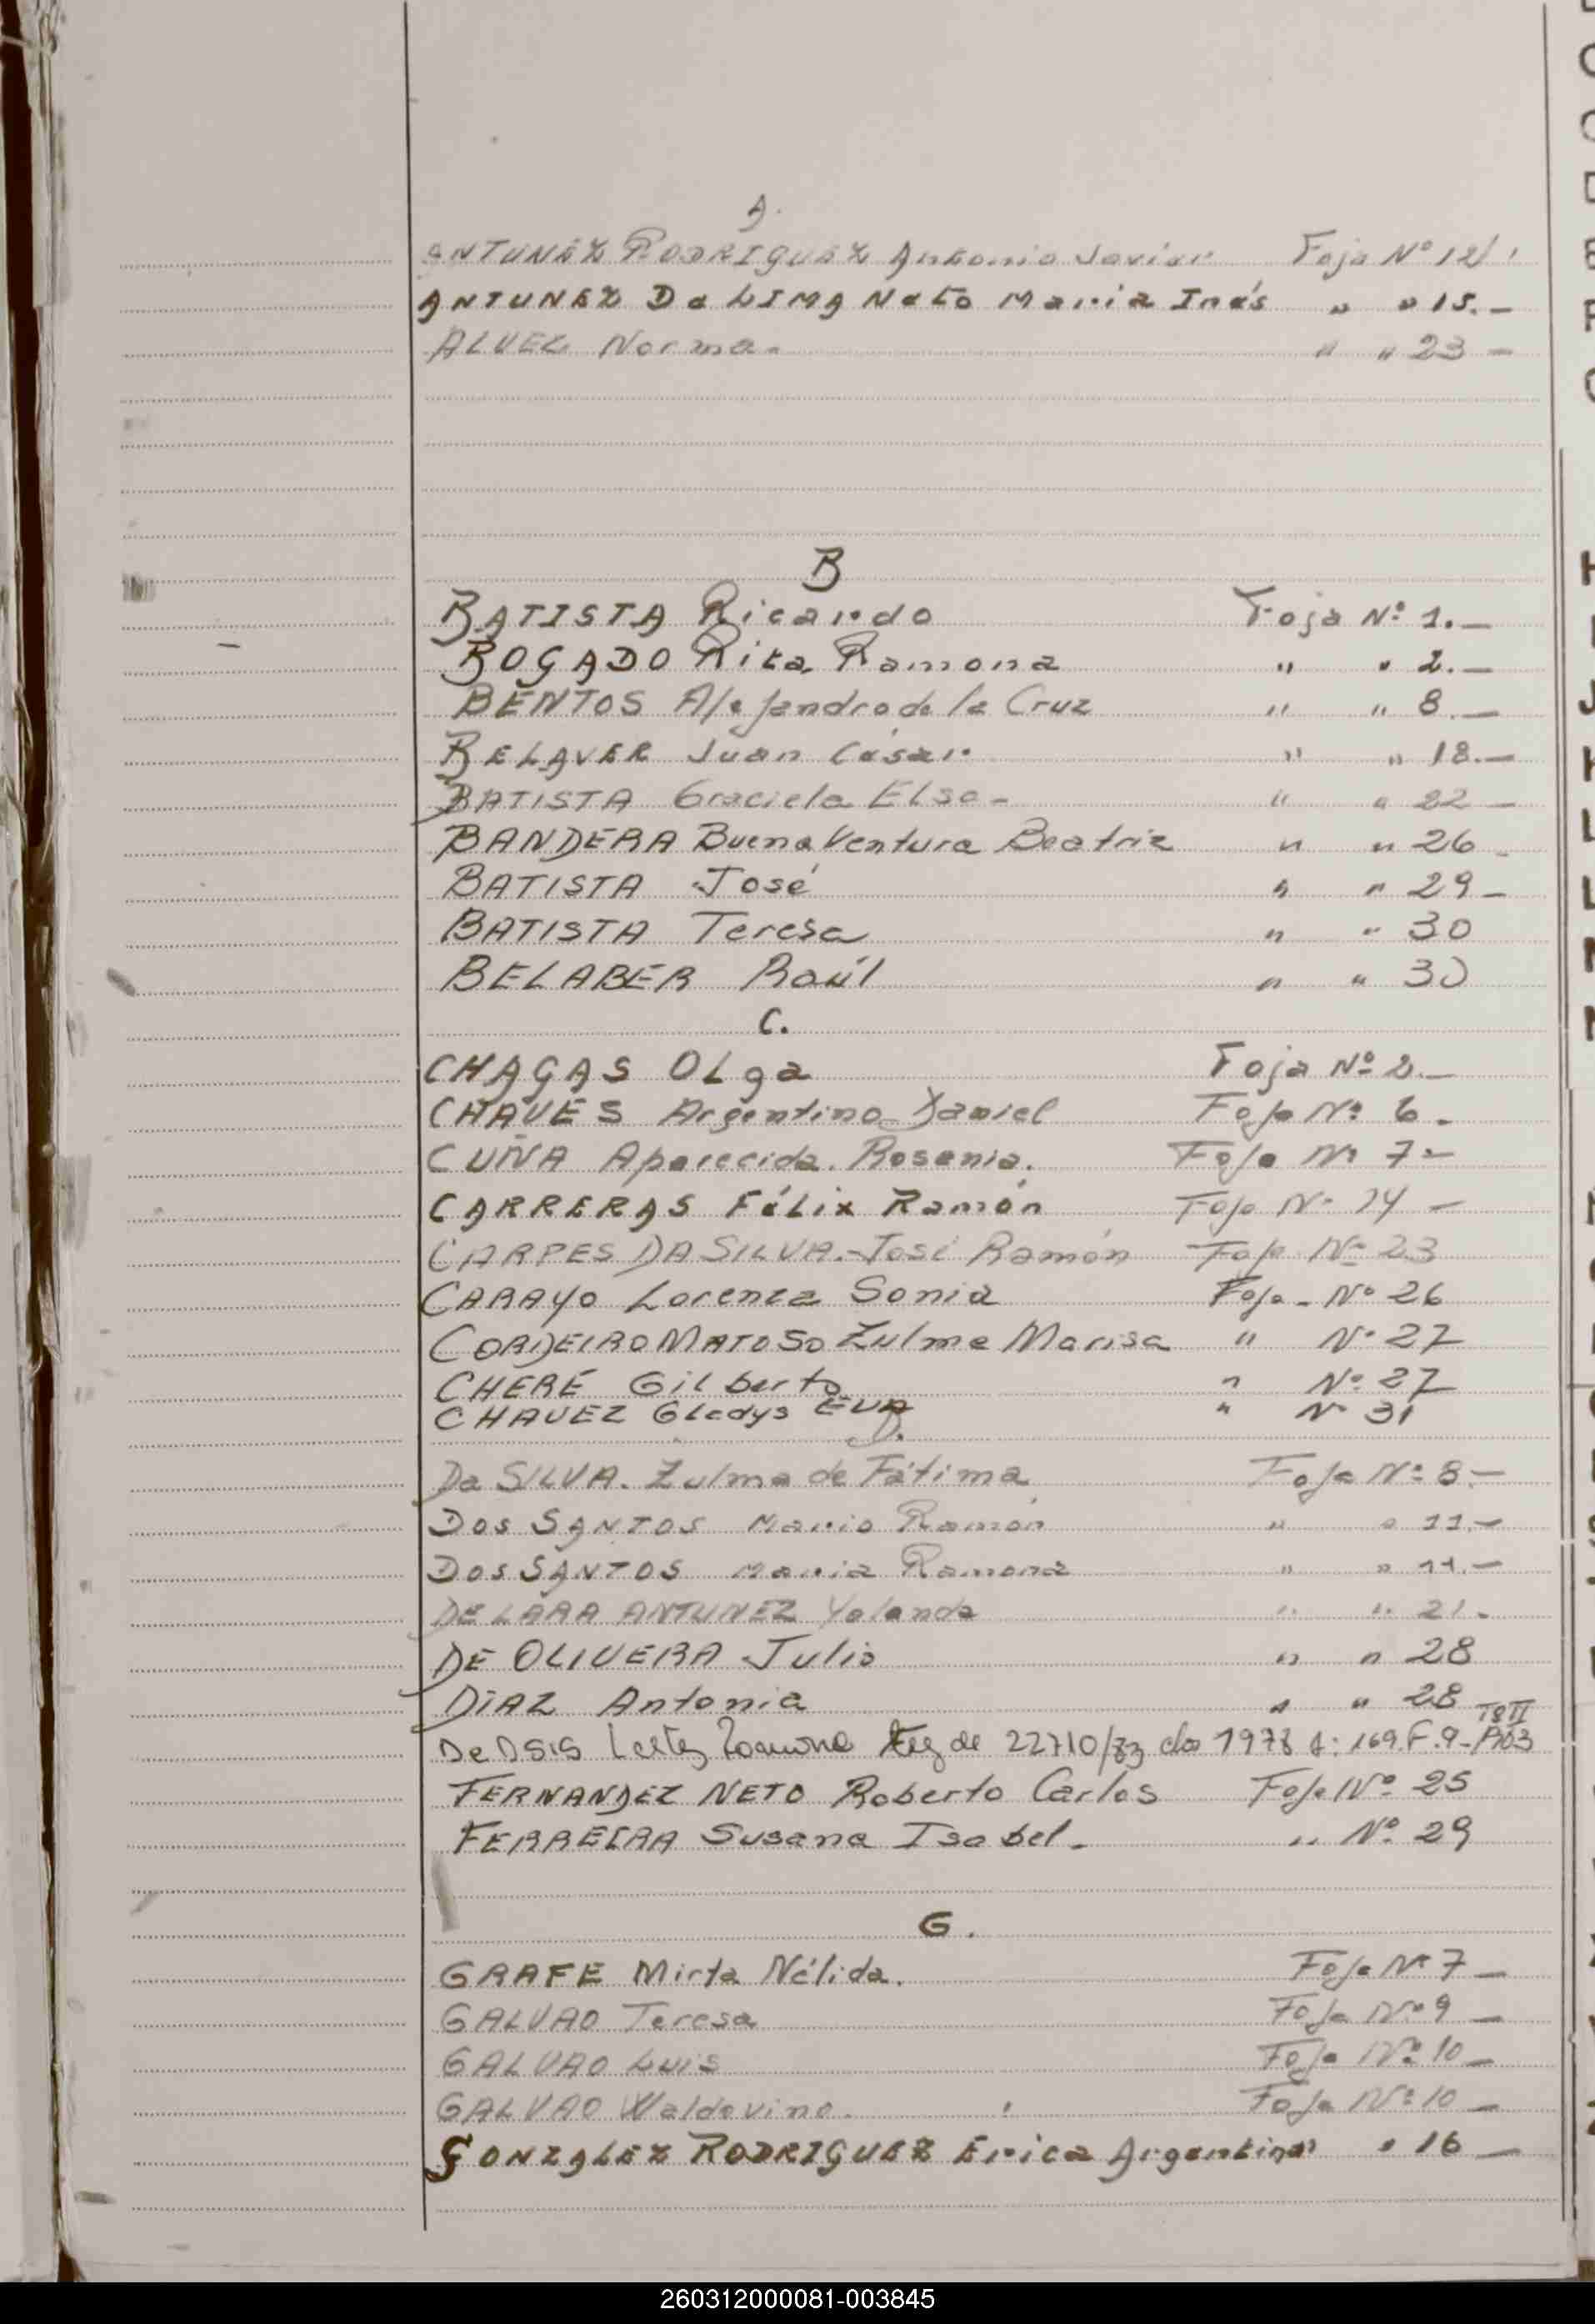 A.
ANTUNEZ RODRIGUEZ Antonio Javier Foja Nº 12/
ANTUNEZ Da LIMA Neto Maria Inés " " 15.-
ALVEZ Norma - " " 23 -
B
BATISTA Ricardo Foja Nº 1.-
BOGADO Rita Ramona " " 2.-
BENTOS Alejandro de la Cruz " " 8.-
BELAVER Juan César " " 18.-
BATISTA Graciela Elsa - " " 22 -
BANDERA Buena Ventura Beatriz " " 26 -
BATISTA José " " 29 -
BATISTA Teresa " " 30
BELABER Raúl " " 30
C.
CHAGAS OLga Foja Nº 2.-
CHAVES Argentino Daniel Foja Nº 6.
CUÑA Aparecida Rosenia. Foja Nº 7-
CARRERAS Félix Ramón Foja Nº 14 -
CARPES DA SILVA - José Ramón Foja Nº 23
CARAYO Lorenza Sonia Foja - Nº 26
CORDEIRO MATOSO Zulma Marisa " Nº 27
CHERÉ Gilberto " Nº 27
CHAVEZ Gladys EVA " Nº 31
D.
Da SILVA. Zulma de Fátima Foja Nº 8.-
DOS SANTOS Mario Ramón " " 11.-
DOS SANTOS Maria Ramona " " 11.-
DE LARA ANTUNEZ Yolanda " " 21.
DE OLIVERA Julio " " 28
DIAZ Antonia " " 28
Ramona de 22710/83 1978 A: 169. F. 9- Tº II
FERNANDEZ NETO Roberto Carlos Foja Nº 25
FERREIRA Susana Isabel - " Nº 29
G.
GRAFE Mirta Nélida. Foja Nº 7 -
GALVAO Teresa Foja Nº 9 -
GALVAO Luis Foja Nº 10 -
GALVAO Waldovino. Foja Nº 10 -
GONZALEZ RODRIGUEZ Erica Argentina " 16 -
260312000081-003845